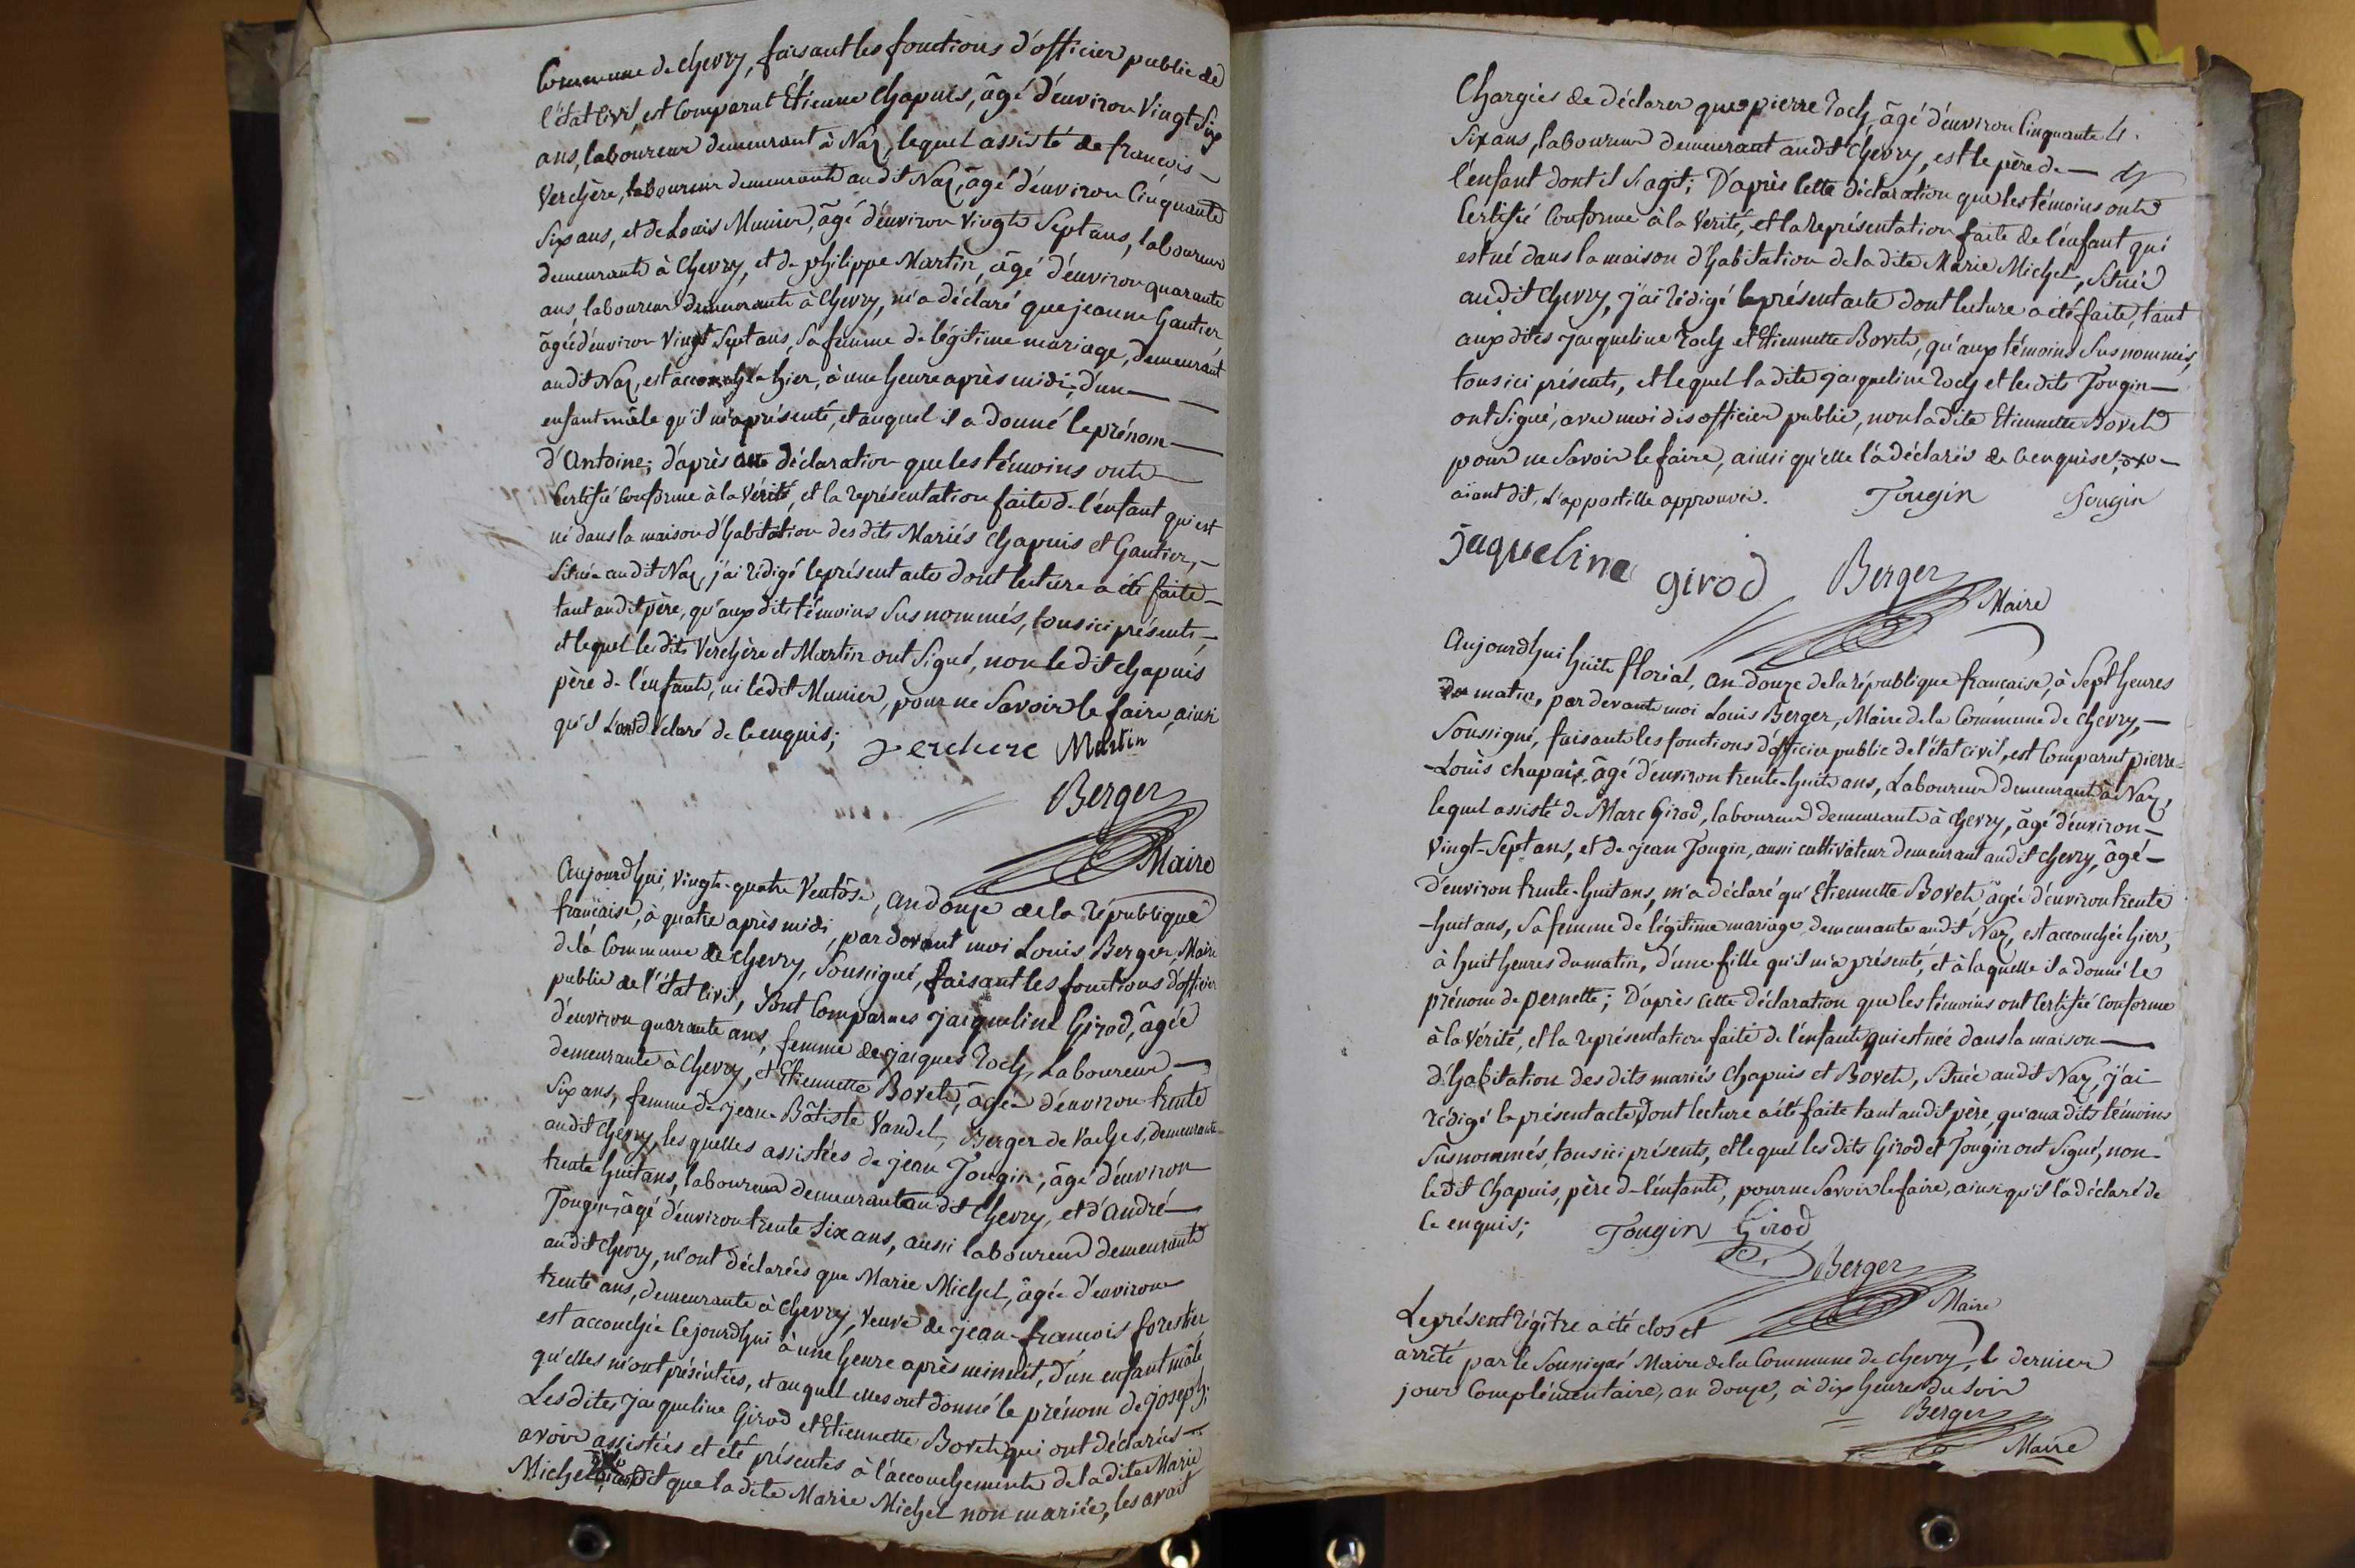 Commune de Chevry, faisant les fonctions d'officier public de
l'état civil, est Comparut Étienne Chapuis, âgé d'environ Vingt Six
ans, laboureur demeurant à Naz, lequel assisté de françois –
Verchère, laboureur demeurant audit Naz, âgé d'environ Cinquante
Six ans, et de Louis Munier, âgé d'environ Vingt Sept ans, laboureur
demeurant à Chevry, et de philippe Martin, âgé d'environ quarante
ans, laboureur demeurant à Chevry, m'a déclaré que jeanne Gautier,
âgée d'environ Vingt Sept ans, Sa femme de légitime mariage, demeurant
audit Naz, est accouchée hier, à une heure après midi, d'un —
enfant mâle qu'il m'a présenté, et auquel il a donné le prénom —
d'Antoine; d'après cette déclaration que les témoins ont —
Certifié Conforme à la Vérité, et la représentation faite de l'enfant qui est
né dans la maison d'habitation des dits Mariés Chapuis et Gautier, –
Située audit Naz, j'ai rédigé le présent acte dont lecture a été faite –
tant audit père, qu'aux dits témoins Sus nommés, tous ici présents, –
et lequel les dits Verchère et Martin ont Signé, non le dit Chapuis
père de l'enfant, ni ledit Munier, pour ne Savoir le faire, ainsi
qu'il l'ont déclaré de ce enquis;
Verchere Martin
Berger
Maire
Aujourd'hui, vingt-quatre Ventôse, an douze de la république
française, à quatre après midi, par devant moi Louis Berger, Maire
de la Commune de Chevry, Soussigné, faisant les fonctions d'officier
public de l'état civil, Sont Comparues Jacqueline Girod, âgée
d'environ quarante ans, femme de jacques Roch, Laboureur —
demeurante à Chevry, et Etiennette Bovet, âgée d'environ trente
Six ans, femme de jean-Bâtiste Vandel, Berger de Vaches, demeurante
audit Chevry, les quelles assistées de jean Tougin, âgé d'environ
trente huit ans, laboureur demeurant audit Chevry, et d'andré —
Tougin, âgé d'environ trente Six ans, aussi laboureur demeurant
audit Chevry, m'ont déclarées que Marie Michel, âgée d'environ
trente ans, demeurante à Chevry, Veuve de jean-françois forestier
est accouchée Cejourd'hui à une heure après minuit, d'un enfant mâle
qu'elles m'ont présentées, et auquel elles ont donné le prénom de joseph;
Les dites Jacqueline Girod et Etiennette Bovet qui ont déclarées –
avoir assistées et été présentes à l'accouchement de la dite Marie
Michel, aiant dit que la dite Marie Michel non mariée, les avait
Chargées de déclarer que pierre Roch, âgé d'environ Cinquante
Six ans, laboureur demeurant audit Chevry, est le père de —
l'enfant dont il S'agit; D'après Cette déclaration que les témoins ont
Certifié Conforme à la Vérité, et la représentation faite de l'enfant qui
est né dans la maison d'habitation de la dite Marie Michel, Située
audit Chevry, j'ai rédigé le présent acte dont lecture a été faite, tant
aux dites Jacqueline Roch et Etiennette Bovet, qu'aux témoins Susnommés,
tous ici présents, et lequel la dite jacqueline Roch et les dits Tougin —
ont Signé, avec moi dis officier public, non la dite Etiennette Bovet
pour ne Savoir le faire, ainsi qu'elle l'a déclarés de Ce enquise,
aiant dit, L'appostille approuvée. Tougin Tougin
jaqueline girod Berger
Maire
Aujourd'hui huit floréal, an douze de la république française, à Sept heures
du matin, par devant moi Louis Berger, Maire de la Commune de Chevry, —
Soussigné, faisant les fonctions d'officier public de l'état civil, est Comparut pierre-
-Louis Chapuis, âgé d'environ trente-huit ans, Laboureur demeurant à Naz,
lequel assisté de Marc Girod, laboureur demeurant à Chevry, âgé d'environ –
Vingt-Sept ans, et de jean Tougin, aussi cultivateur demeurant audit Chevry, âgé –
d'environ trente-huit ans, m'a déclaré qu'Étiennette Bovet, âgée d'environ trente
-huit ans, Sa femme de légitime mariage, demeurante audit Naz, est accouchée hier,
à huit heures du matin, d'une fille qu'il m'a présenté, et à laquelle il a donné le
prénom de pernette; D'après Cette déclaration que les témoins ont Certifié Conforme
à la Vérité, et la représentation faite de l'enfant qui est née dans la maison —
d'habitation des dits mariés Chapuis et Bovet, Située audit Naz, j'ai
rédigé le présent acte, Dont lecture a été faite tant audit père, qu'aux dits témoins
Susnommés, tous ici présents, et lequel les dits Girod et Tougin ont Signé, non –
le dit Chapuis, père de l'enfant, pour ne Savoir le faire, ainsi qu'il l'a déclaré de
Ce enquis; Tougin Girod
Berger
Maire
Le présent régître a été clos et
arrêté par le Soussigné Maire de la Commune de Chevry, le dernier
jour Complémentaire, an douze, à dix heures du Soir
Berger
Maire